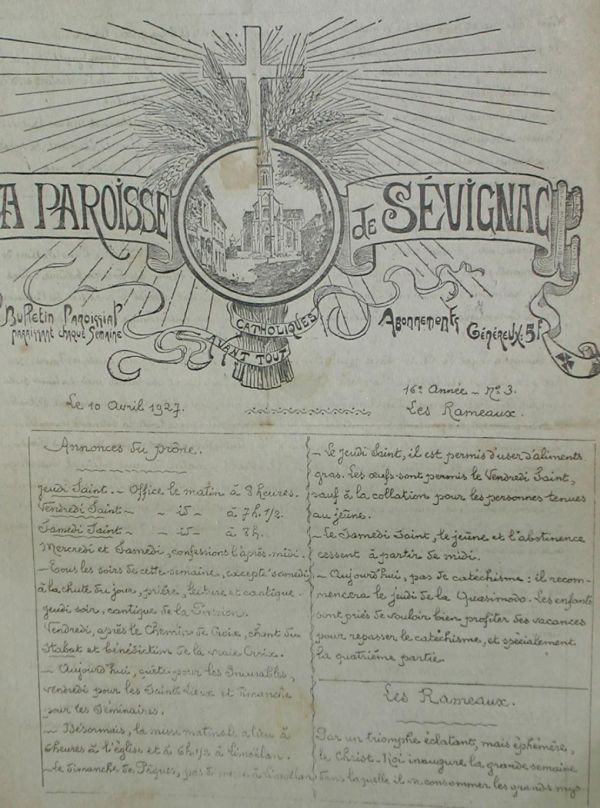 A PAROISSE de SÉVIGNAC
Bulletin Paroissial
paraissant chaque semaine
CATHOLIQUES
AVANT TOUT
Abonnements
Généreux: 5f
Le 10 Avril 1927.
16e Année - No 3.
Les Rameaux.
Annonces du prône.
Jeudi Saint. - Office le matin à 8 heures.
Vendredi Saint - - id - à 7h. 1/2.
Samedi Saint - - id - à 8h.
Mercredi et Samedi, confessions l'après-midi.
- Tous les soirs de cette semaine, excepté samedi
à la chute du jour, prière, lecture et cantique.
Jeudi soir, cantique de la Passion.
Vendredi, après le Chemin de Croix, chant du
Stabat et bénédiction de la vraie Croix.
- Aujourd'hui, quête pour les Incurables,
vendredi pour les Saints Lieux et dimanche
pour les Séminaires.
- Désormais, la messe matinale a lieu à
6 heures à l'église et à 6h. 1/2 à Limoëlan.
- Le dimanche de Pâques, pas de messe à Limoëlan
- Le Jeudi Saint, il est permis d'user d'aliments
gras. Les œufs sont permis le Vendredi Saint,
sauf à la collation pour les personnes tenues
au jeûne.
- Le Samedi Saint, le jeûne et l'abstinence
cessent à partir de midi.
- Aujourd'hui, pas de catéchisme : il recom-
mencera le jeudi de la Quasimodo. Les enfants
sont priés de vouloir bien profiter des vacances
pour repasser le catéchisme, et spécialement
la quatrième partie.
Les Rameaux.
Par un triomphe éclatant, mais éphémère,
le Christ-Roi inaugure la grande semaine
dans laquelle il va consommer les grands mys